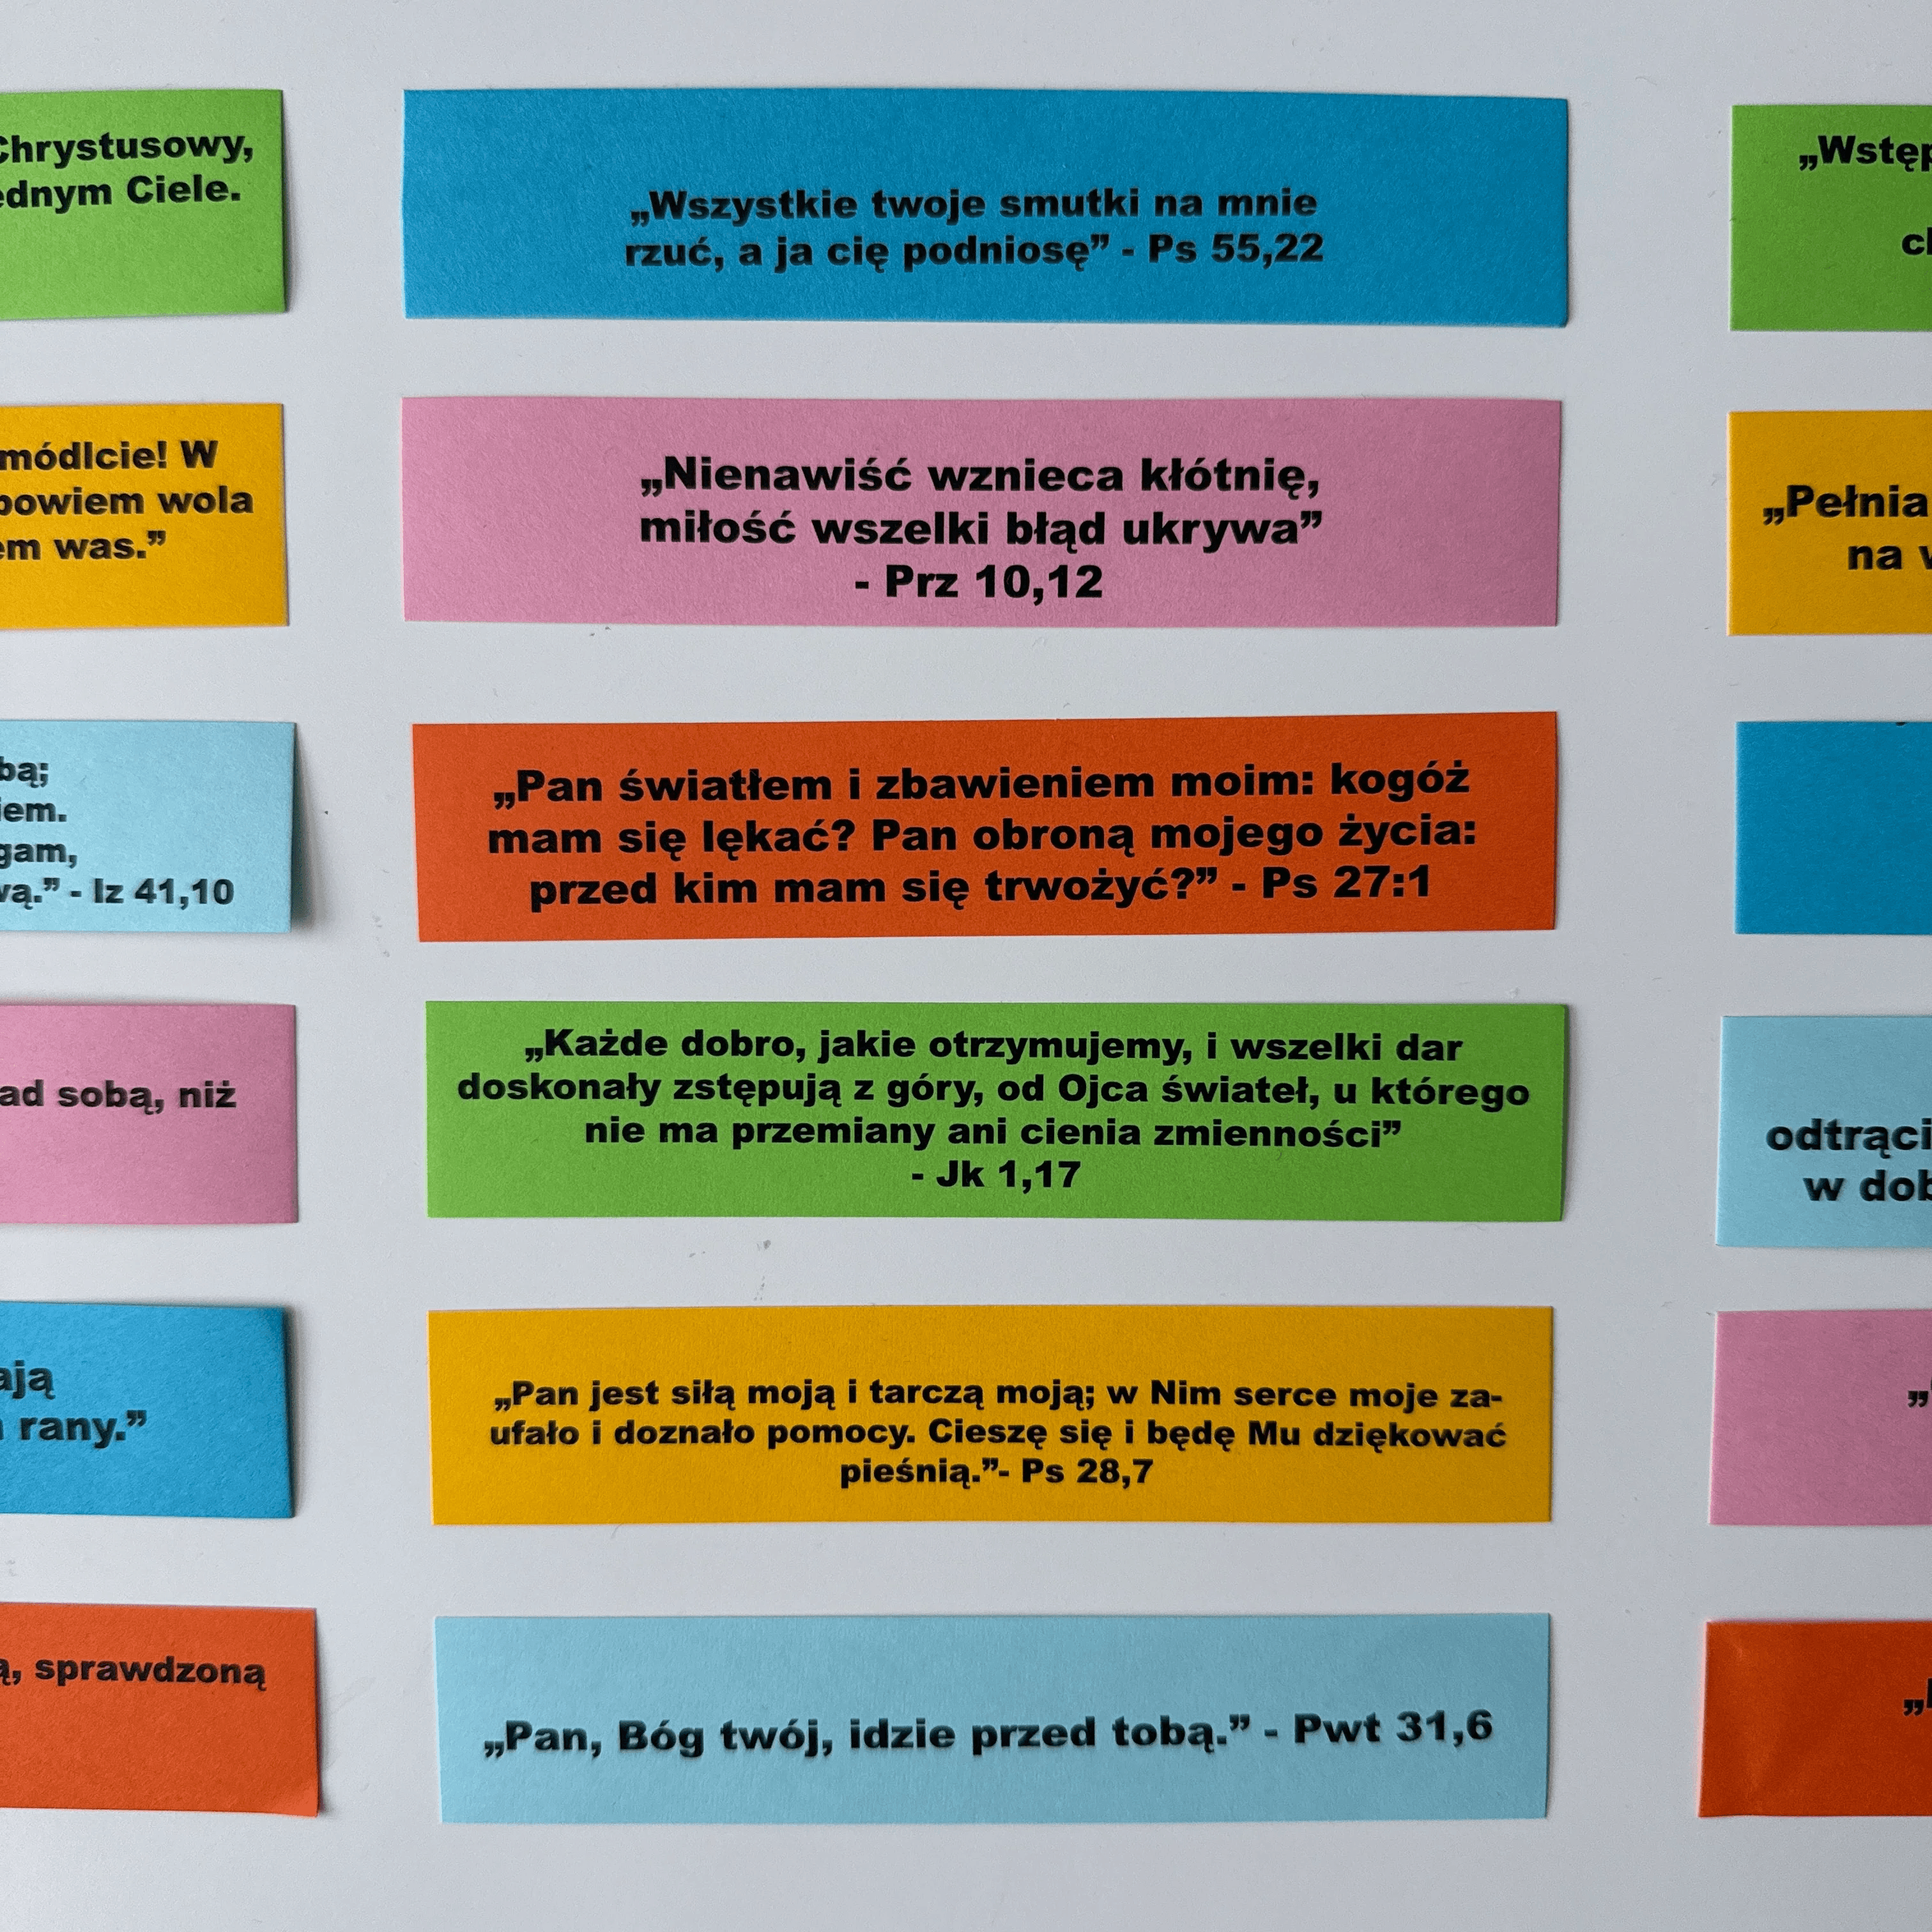 Chrystusowy,
ednym Ciele.
módlcie! W
bowiem wola
em was.”
bą;
iem.
gam,
wą.” - Iz 41,10
ad sobą, niż
ają
rany.”
ą, sprawdzoną
„Wszystkie twoje smutki na mnie
rzuć, a ja cię podniosę” - Ps 55,22
„Nienawiść wznieca kłótnię,
miłość wszelki błąd ukrywa”
- Prz 10,12
„Pan światłem i zbawieniem moim: kogóż
mam się lękać? Pan obroną mojego życia:
przed kim mam się trwożyć?” - Ps 27:1
„Każde dobro, jakie otrzymujemy, i wszelki dar
doskonały zstępują z góry, od Ojca świateł, u którego
nie ma przemiany ani cienia zmienności”
- Jk 1,17
„Pan jest siłą moją i tarczą moją; w Nim serce moje za-
ufało i doznało pomocy. Cieszę się i będę Mu dziękować
pieśnią.”- Ps 28,7
„Pan, Bóg twój, idzie przed tobą.” - Pwt 31,6
„Wstęp
„Pełnia
na w
odtrąci
w dob